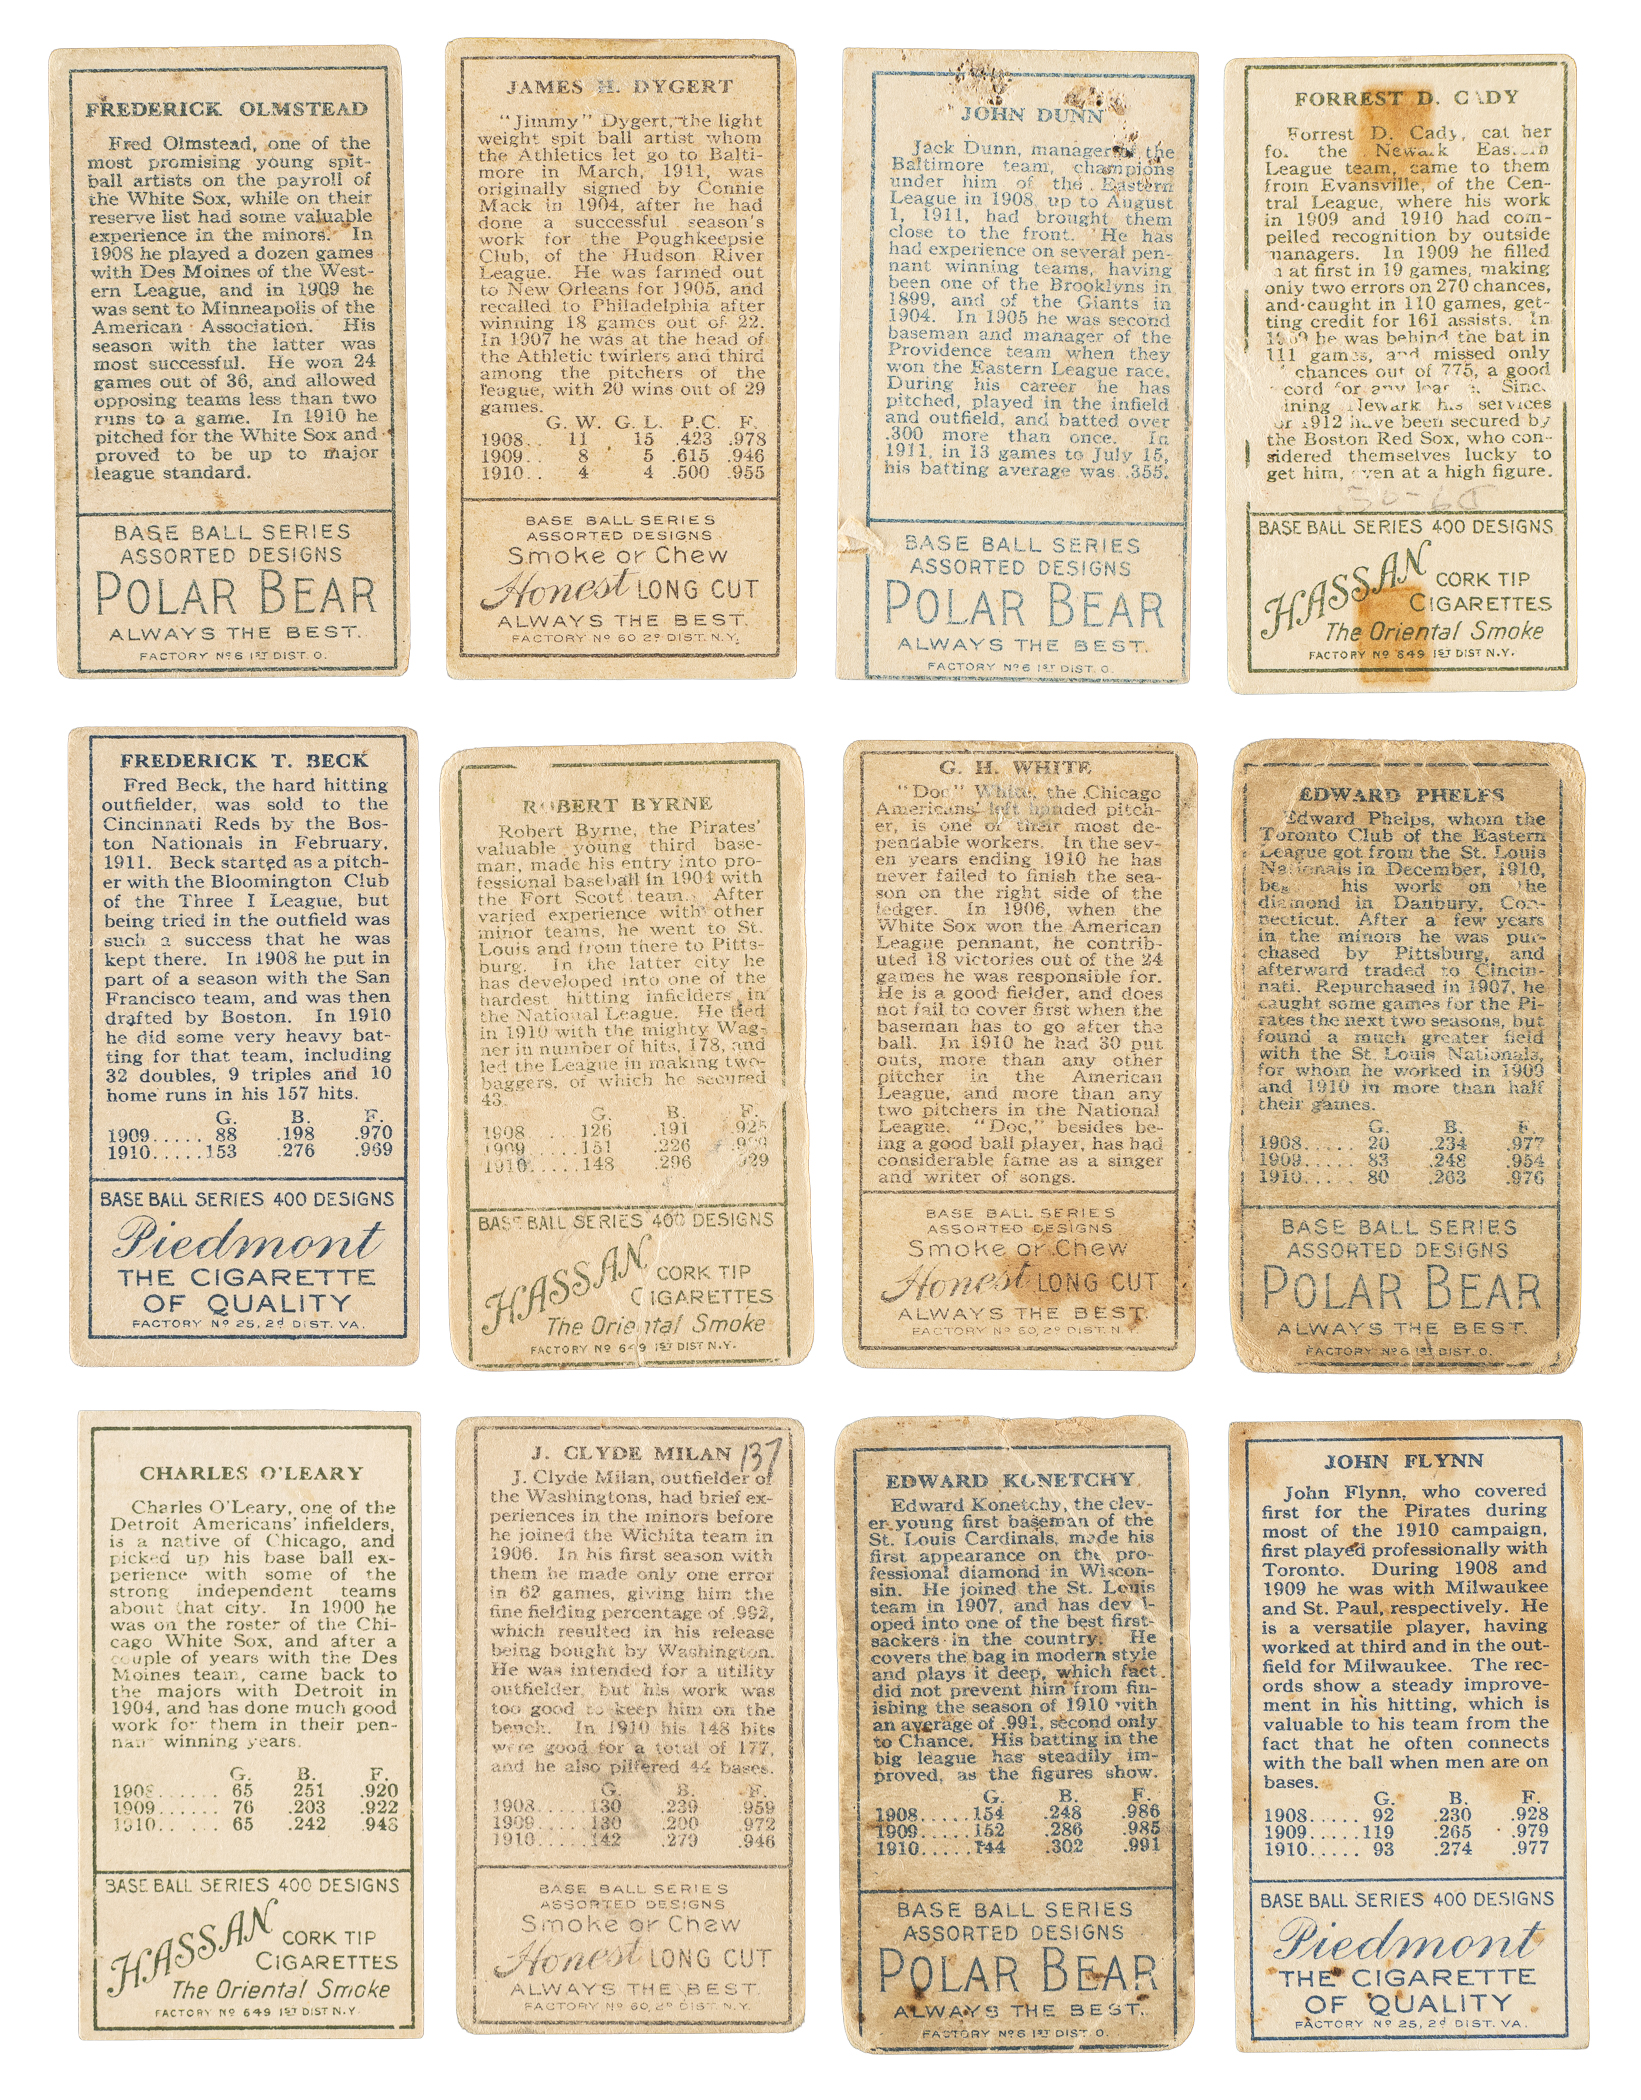 FREDERICK OLMSTEAD
Fred Olmstead, one of the
most promising young spit-
ball artists on the payroll of
the White Sox, while on their
reserve list had some valuable
experience in the minors. In
1908 he played a dozen games
with Des Moines of the West-
ern League, and in 1909 he
was sent to Minneapolis of the
American Association. His
season with the latter was
most successful. He won 24
games out of 36, and allowed
opposing teams less than two
runs to a game. In 1910 he
pitched for the White Sox and
proved to be up to major
league standard.
BASE BALL SERIES
ASSORTED DESIGNS
POLAR BEAR
ALWAYS THE BEST.
FACTORY Nº 6 1ST DIST. O.
JAMES H. DYGERT
"Jimmy" Dygert, the light
weight spit ball artist whom
the Athletics let go to Balti-
more in March, 1911, was
originally signed by Connie
Mack in 1904, after he had
done a successful season's
work for the Poughkeepsie
Club, of the Hudson River
League. He was farmed out
to New Orleans for 1905, and
recalled to Philadelphia after
winning 18 games out of 22.
In 1907 he was at the head of
the Athletic twirlers and third
among the pitchers of the
league, with 20 wins out of 29
games.
G. W. G. L. P.C. F.
1908.. 11 15 .423 .978
1909.. 8 5 .615 .946
1910.. 4 4 .500 .955
BASE BALL SERIES
ASSORTED DESIGNS
Smoke or Chew
Honest LONG CUT
ALWAYS THE BEST.
FACTORY Nº 60 2º DIST. N.Y.
JOHN DUNN
Jack Dunn, manager of the
Baltimore team, champions
under him of the Eastern
League in 1908, up to August
1, 1911, had brought them
close to the front. He has
had experience on several pen-
nant winning teams, having
been one of the Brooklyns in
1899, and of the Giants in
1904. In 1905 he was second
baseman and manager of the
Providence team when they
won the Eastern League race.
During his career he has
pitched, played in the infield
and outfield, and batted over
.300 more than once. In
1911, in 13 games to July 15,
his batting average was .355.
BASE BALL SERIES
ASSORTED DESIGNS
POLAR BEAR
ALWAYS THE BEST.
FACTORY Nº 6 1ST DIST. O.
FORREST D. CADY
Forrest D. Cady, cat her
for the Newark Eastern
League team, came to them
from Evansville, of the Cen-
tral League, where his work
in 1909 and 1910 had com-
pelled recognition by outside
managers. In 1909 he filled
in at first in 19 games, making
only two errors on 270 chances,
and caught in 110 games, get-
ting credit for 161 assists. In
he was behind the bat in
111 games, and missed only
chances out of 775, a good
cord for any league. Since
ining Newark his services
for 1912 have been secured by
the Boston Red Sox, who con-
sidered themselves lucky to
get him, even at a high figure.
BASE BALL SERIES 400 DESIGNS
HASSAN CORK TIP
CIGARETTES
The Oriental Smoke
FACTORY Nº 649 1ST DIST N.Y.
FREDERICK T. BECK
Fred Beck, the hard hitting
outfielder, was sold to the
Cincinnati Reds by the Bos-
ton Nationals in February,
1911. Beck started as a pitch-
er with the Bloomington Club
of the Three I League, but
being tried in the outfield was
such a success that he was
kept there. In 1908 he put in
part of a season with the San
Francisco team, and was then
drafted by Boston. In 1910
he did some very heavy bat-
ting for that team, including
32 doubles, 9 triples and 10
home runs in his 157 hits.
G. B. F.
1909..... 88 .198 .970
1910.....153 .276 .969
BASE BALL SERIES 400 DESIGNS
Piedmont
THE CIGARETTE
OF QUALITY
FACTORY Nº 25, 2d DIST. VA.
ROBERT BYRNE
Robert Byrne, the Pirates'
valuable young third base-
man, made his entry into pro-
fessional baseball in 1904 with
the Fort Scott team. After
varied experience with other
minor teams, he went to St.
Louis and from there to Pitts-
burg. In the latter city he
has developed into one of the
hardest hitting infielders in
the National League. He tied
in 1910 with the mighty Wag-
ner in number of hits, 178, and
led the League in making two-
baggers, of which he secured
43.
G. B. F.
1908.....126 .191 .925
1909.....151 .226
1910.....148 .296 .929
BASE BALL SERIES 400 DESIGNS
HASSAN CORK TIP
CIGARETTES
The Oriental Smoke
FACTORY Nº 649 1ST DIST N.Y.
G. H. WHITE
"Doc" White, the Chicago
Americans' left handed pitch-
er, is one of their most de-
pendable workers. In the sev-
en years ending 1910 he has
never failed to finish the sea-
son on the right side of the
ledger. In 1906, when the
White Sox won the American
League pennant, he contrib-
uted 18 victories out of the 24
games he was responsible for.
He is a good fielder, and does
not fail to cover first when the
baseman has to go after the
ball. In 1910 he had 30 put
outs, more than any other
pitcher in the American
League, and more than any
two pitchers in the National
League. "Doc," besides be-
ing a good ball player, has had
considerable fame as a singer
and writer of songs.
BASE BALL SERIES
ASSORTED DESIGNS
Smoke or Chew
Honest LONG CUT
ALWAYS THE BEST.
FACTORY Nº 60, 2º DIST. N.Y.
EDWARD PHELPS
Edward Phelps, whom the
Toronto Club of the Eastern
League got from the St. Louis
Nationals in December, 1910,
began his work on the
diamond in Danbury, Con-
necticut. After a few years
in the minors he was pur-
chased by Pittsburg, and
afterward traded to Cincin-
nati. Repurchased in 1907, he
caught some games for the Pi-
rates the next two seasons, but
found a much greater field
with the St. Louis Nationals,
for whom he worked in 1909
and 1910 in more than half
their games.
G. B. F.
1908..... 20 .234 .977
1909..... 83 .248 .954
1910..... 80 .263 .976
BASE BALL SERIES
ASSORTED DESIGNS
POLAR BEAR
ALWAYS THE BEST.
FACTORY Nº 6 1ST DIST. O.
CHARLES O'LEARY
Charles O'Leary, one of the
Detroit Americans' infielders,
is a native of Chicago, and
picked up his base ball ex-
perience with some of the
strong independent teams
about that city. In 1900 he
was on the roster of the Chi-
cago White Sox, and after a
couple of years with the Des
Moines team, came back to
the majors with Detroit in
1904, and has done much good
work for them in their pen-
nant winning years.
G. B. F.
1908....... 65 251 .920
1909....... 76 .203 .922
1910....... 65 .242 .948
BASE BALL SERIES 400 DESIGNS
HASSAN CORK TIP
CIGARETTES
The Oriental Smoke
FACTORY Nº 649 1ST DIST N.Y.
J. CLYDE MILAN 137
J. Clyde Milan, outfielder of
the Washingtons, had brief ex-
periences in the minors before
he joined the Wichita team in
1906. In his first season with
them he made only one error
in 62 games, giving him the
fine fielding percentage of .992,
which resulted in his release
being bought by Washington.
He was intended for a utility
outfielder, but his work was
too good to keep him on the
bench. In 1910 his 148 hits
were good for a total of 177,
and he also pilfered 44 bases.
G. B. F.
1908.....130 .239 .959
1909.....130 .200 .972
1910.....142 .279 .946
BASE BALL SERIES
ASSORTED DESIGNS
Smoke or Chew
Honest LONG CUT
ALWAYS THE BEST.
FACTORY Nº 60, 2º DIST. N.Y.
EDWARD KONETCHY
Edward Konetchy, the clev-
er young first baseman of the
St. Louis Cardinals, made his
first appearance on the pro-
fessional diamond in Wiscon-
sin. He joined the St. Louis
team in 1907, and has devel-
oped into one of the best first-
sackers in the country. He
covers the bag in modern style
and plays it deep, which fact
did not prevent him from fin-
ishing the season of 1910 with
an average of .991, second only
to Chance. His batting in the
big league has steadily im-
proved, as the figures show.
G. B. F.
1908.....154 .248 .986
1909.....152 .286 .985
1910.....144 .302 .991
BASE BALL SERIES
ASSORTED DESIGNS
POLAR BEAR
ALWAYS THE BEST.
FACTORY Nº 6 1ST DIST. O.
JOHN FLYNN
John Flynn, who covered
first for the Pirates during
most of the 1910 campaign,
first played professionally with
Toronto. During 1908 and
1909 he was with Milwaukee
and St. Paul, respectively. He
is a versatile player, having
worked at third and in the out-
field for Milwaukee. The rec-
ords show a steady improve-
ment in his hitting, which is
valuable to his team from the
fact that he often connects
with the ball when men are on
bases.
G. B. F.
1908..... 92 .230 .928
1909.....119 .265 .979
1910..... 93 .274 .977
BASE BALL SERIES 400 DESIGNS
Piedmont
THE CIGARETTE
OF QUALITY
FACTORY Nº 25, 2d DIST. VA.